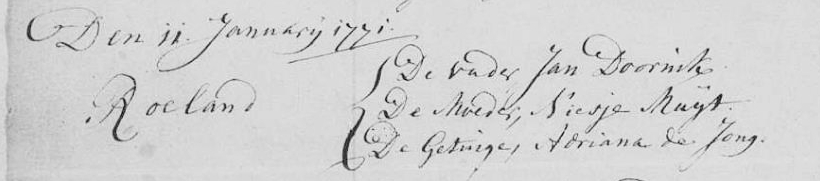 Den 11. January 1771.
De vader Jan Doornik
Roeland De Moeder, Niesje Muyt.
De Getuige, Adriana de Jong.